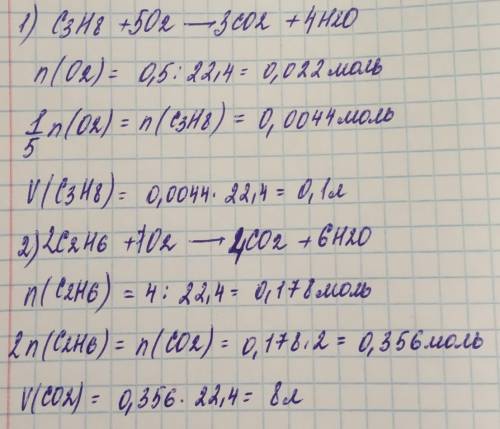 1) C3H8 + 5O2 → 3CO2 + 4H2O
n(O2) = 0,5 : 22,4 = 0,022 моль
1/5 n(O2) = n(C3H8) = 0,0044 моль
V(C3H8) = 0,0044 · 22,4 = 0,1 л
2) 2C2H6 + 7O2 → 4CO2 + 6H2O
n(C2H6) = 4 : 22,4 = 0,178 моль
2n(C2H6) = n(CO2) = 0,178 · 2 = 0,356 моль
V(CO2) = 0,356 · 22,4 = 8 л